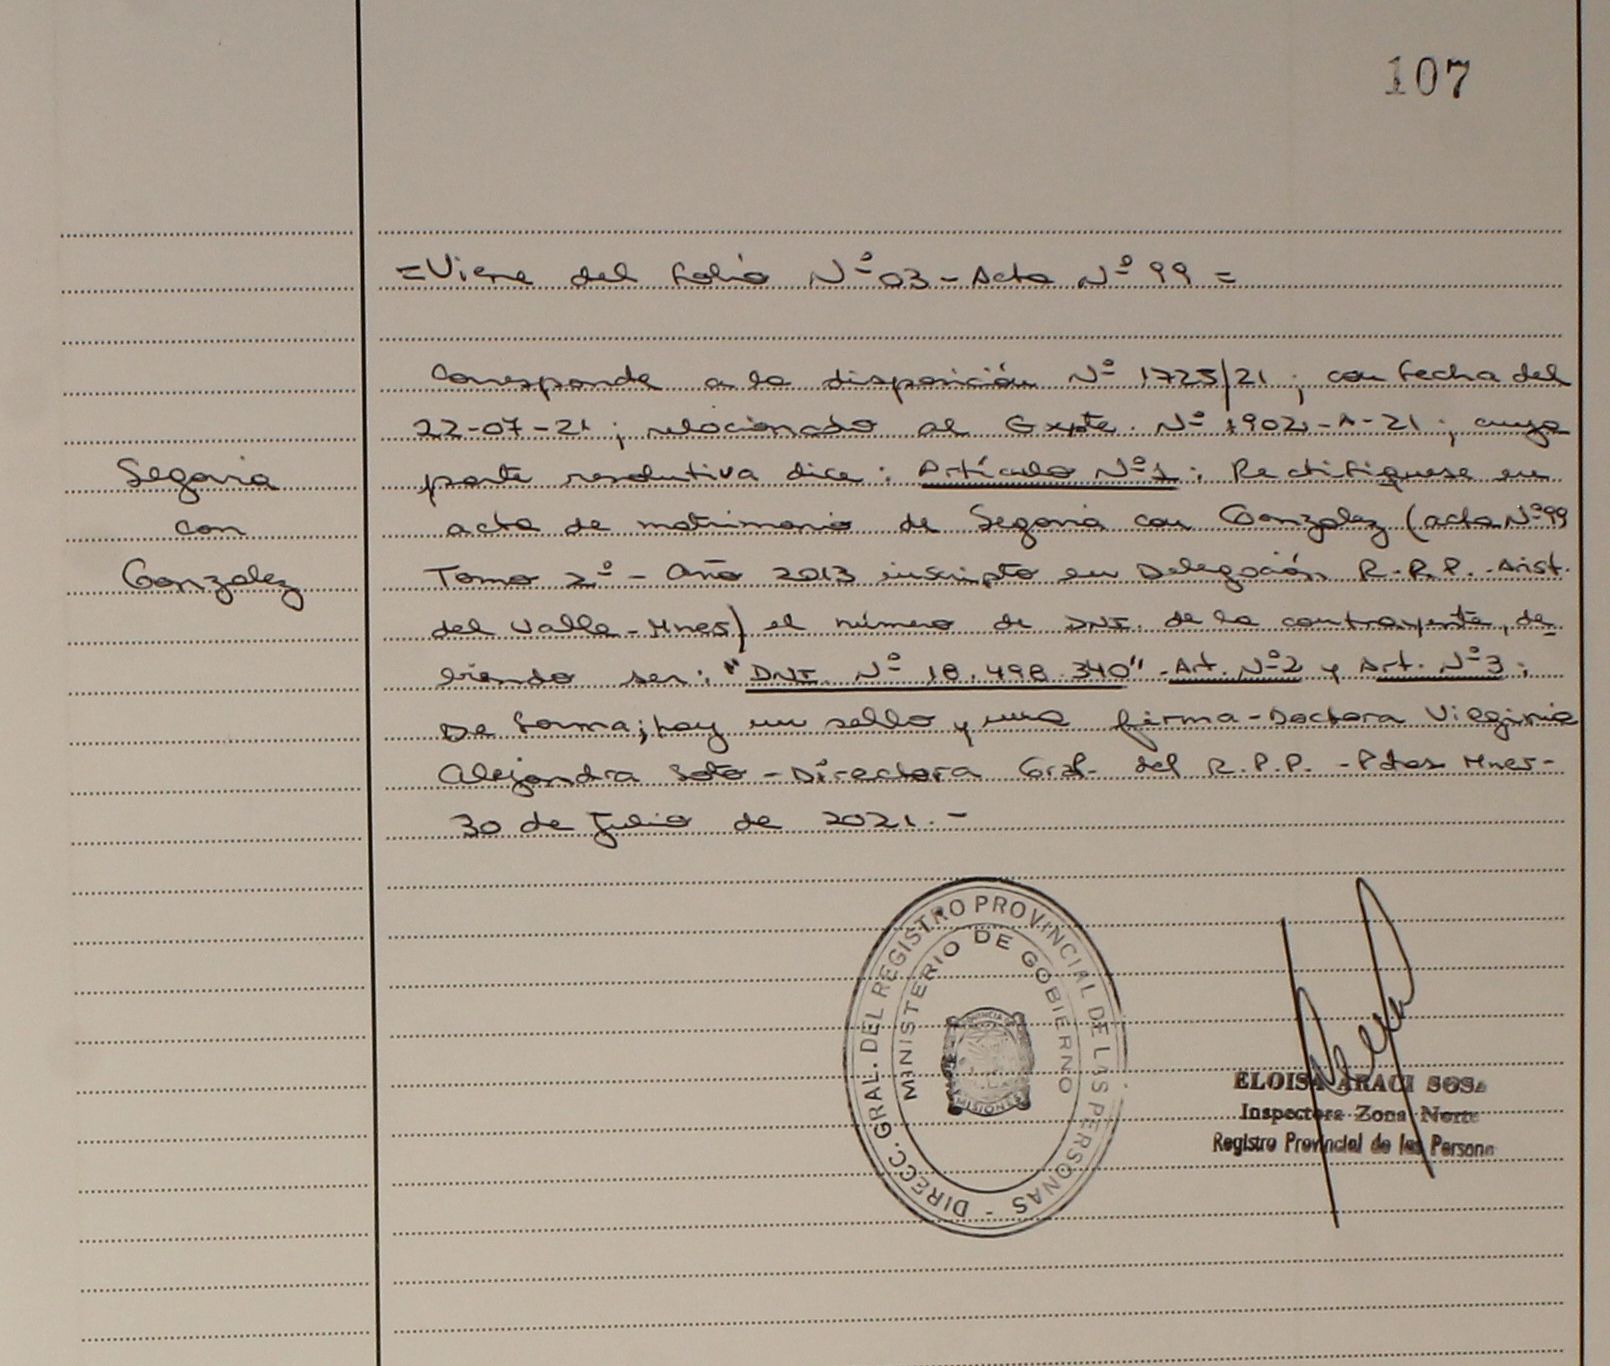 107
=Viene del folio Nº 03 - Acta Nº 99 =
Corresponde a la disposición Nº 1725/21 ; con fecha del
22-07-21 ; relacionado al Expte. Nº 1902-A-21 ; cuya
parte resolutiva dice : Artículo Nº1 : Rectifiquese en
acta de matrimonio de Segovia con Gonzalez (acta Nº99
Tomo 2º - Año 2013 inscripto en Delegación R.P.P. Arist.
del Valle - Mnes) el número de DNI. de la contrayente, de-
biendo ser : "DNI. Nº 18.498.340" - Art. Nº2 y Art. Nº3 :
De forma; hay un sello y una firma - Doctora Virginia
Alejandra Soto - Directora Gral. del R.P.P. - Pdas Mnes -
30 de Julio de 2021. -
Segovia
con
Gonzalez
DIRECC. GRAL. DEL REGISTRO PROVINCIAL DE LAS PERSONAS -
MINISTERIO DE GOBIERNO
PROVINCIA DE
MISIONES
ELOISA ARACI SOSA
Inspectora Zona Norte
Registro Provincial de las Persona